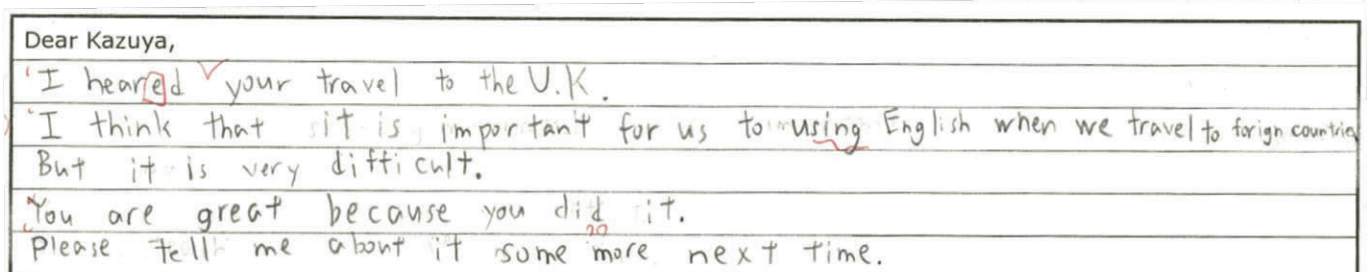 Dear Kazuya,
I heared your travel to the U.K.
I think that it is important for us to using English when we travel to forign countries
But it is very difficult.
You are great because you did it.
Please tell me about it some more next time.